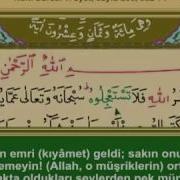 وَهِيَ مِائَةٌ وَثَمَانٍ وَعِشْرُونَ آيَةً
اللهِ الرَّحْمٰنِ
اللهِ فَلَا تَسْتَعْجِلُوهُ سُبْحَانَهُ وَتَعَالٰى عَمَّا
n emri (kıyâmet) geldi; sakın onu
emeyin! (Allah, o müşriklerin) ort
akta oldukları şeylerden pek mü